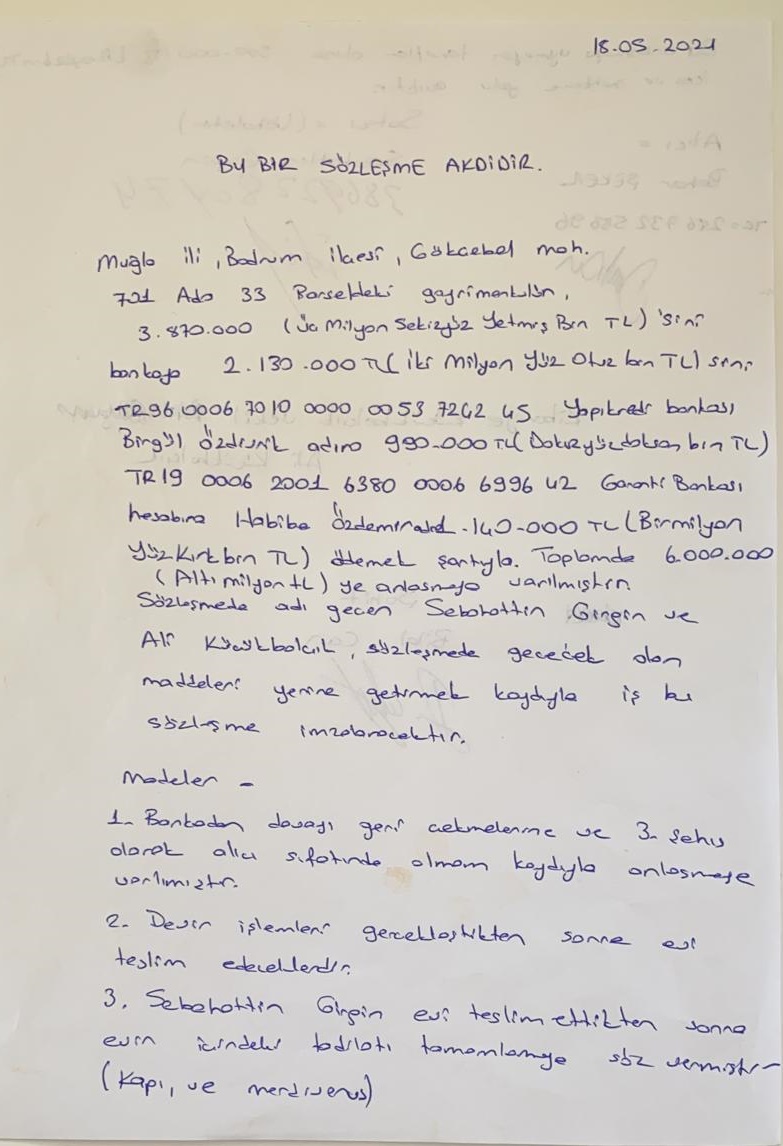 18.05.2021
BU BİR SÖZLEŞME AKDİDİR.
Muğla ili, Bodrum ilçesi, Gökçebel mah.
721 Ada 33 Parseldeki gayrimenkulün,
3.870.000 (Üç Milyon Sekizyüz Yetmiş Bin TL)'sini
bankaya 2.130.000 TL (iki Milyon Yüz Otuz bin TL) sini
TR96 0006 7010 0000 0053 7242 45 Yapıkredi bankası
Birgül adına 990.000 TL (Dokuzyüzdoksan bin TL)
TR19 0006 2001 6380 0006 6996 42 Garanti Bankası
hesabına Habibe 1.140.000 TL (Birmilyon
Yüz Kırk bin TL) ödemek şartıyla. Toplamda 6.000.000
(Altı milyon tL) ye anlaşmaya varılmıştır.
Sözleşmede adı geçen Sebahattin Girgin ve
Ali Küçükbalcık, sözleşmede geçecek olan
maddeleri yerine getirmek kaydıyla iş bu
sözleşme imzalanacaktır.
Madeler -
1- Bankadan davayı geri çekmelerine ve 3. şahıs
olarak alıcı sıfatında olmam kaydıyla anlaşmaya
varılmıştır.
2- Devir işlemleri gerçekleştikten sonra evi
teslim edeceklerdir.
3. Sebahattin Girgin evi teslim ettikten sonra
evin içindeki tadilatı tamamlamaya söz vermiştir-
(Kapı, ve)